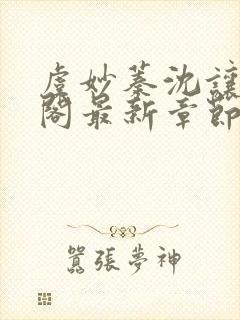 虞妙蓁沈讓
閣最新章節
囂張夢神